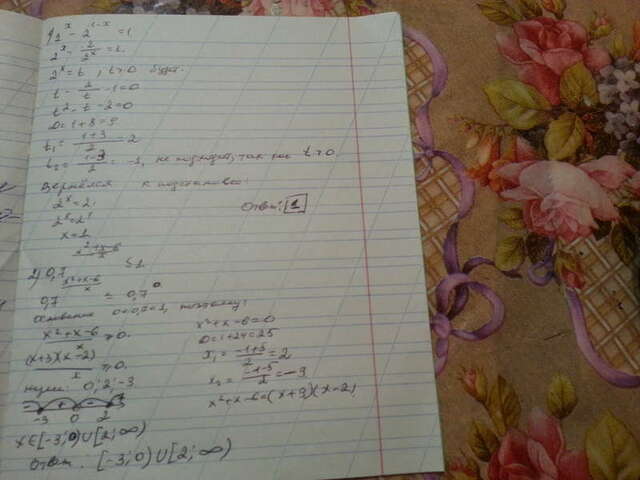 1) 2^x - 2^(1-x) = 1
2^x - 2/2^x = 1
2^x = t, t>0
t - 2/t - 1 = 0
t² - t - 2 = 0
D = 1+8 = 9
t₁ = (1+3)/2 = 2
t₂ = (1-3)/2 = -1, не подходит, так как t>0.
Вернёмся к подстановке
2^x = 2
2^x = 2¹
x = 1
Ответ: 1
2) 0,7^((x²+x-6)/x) ≤ 1
0,7^((x²+x-6)/x) ≤ 0,7^0
Основание 0<0,7<1, поэтому:
(x²+x-6)/x ≥ 0.
((x+3)(x-2))/x ≥ 0.
нули: 0; 2; -3
-3 0 2
x²+x-6=0
D=1+24=25
x₁ = (-1+5)/2 = 2
x₂ = (-1-5)/2 = -3
x²+x-6=(x+3)(x-2)
x∈[-3;0)∪[2;∞)
Ответ: [-3;0)∪[2;∞)